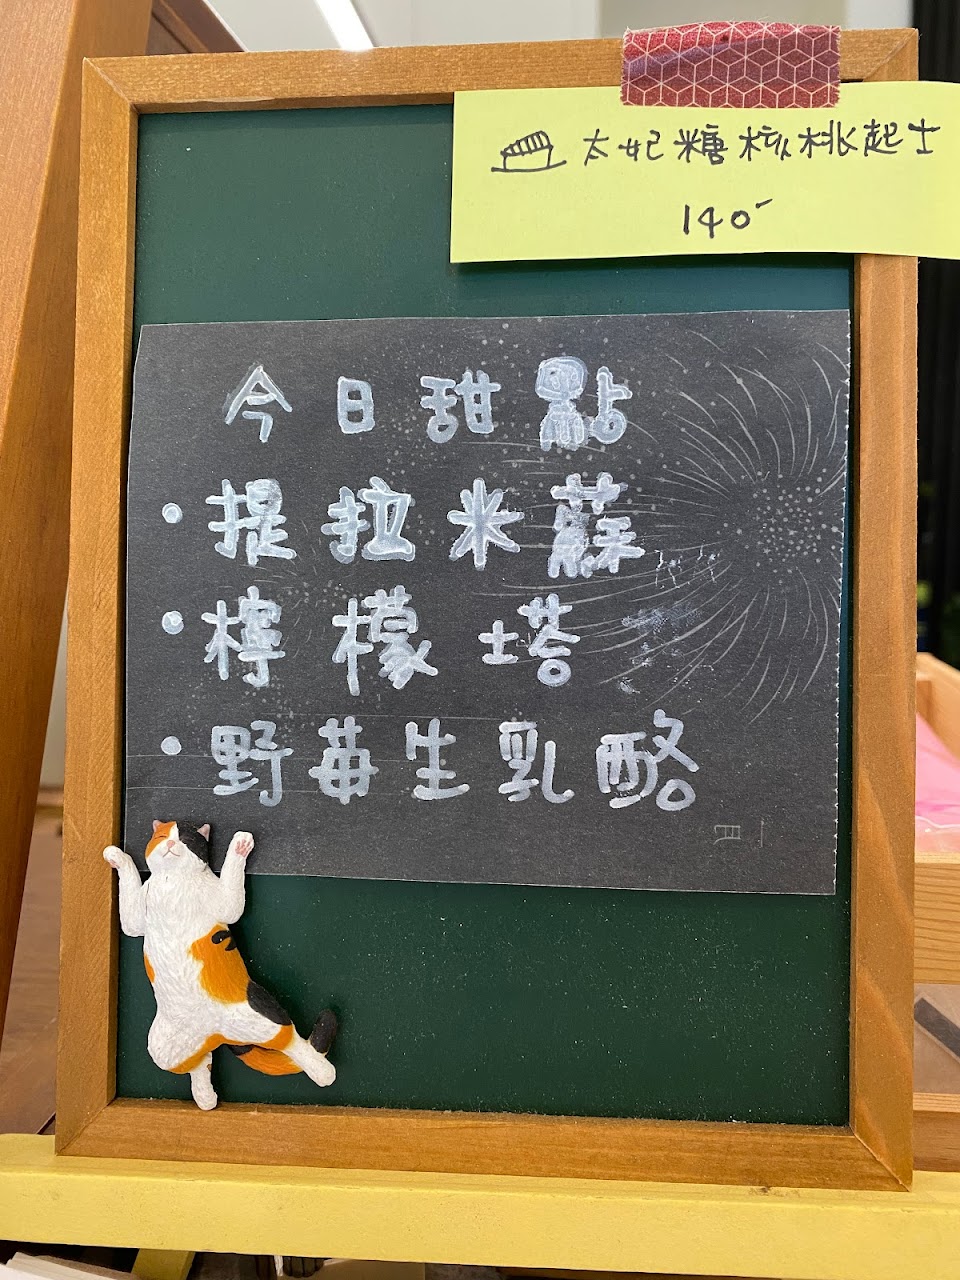 太妃糖核桃起士
140
今日甜點
・提拉米蘇
・檸檬塔
・野莓生乳酪